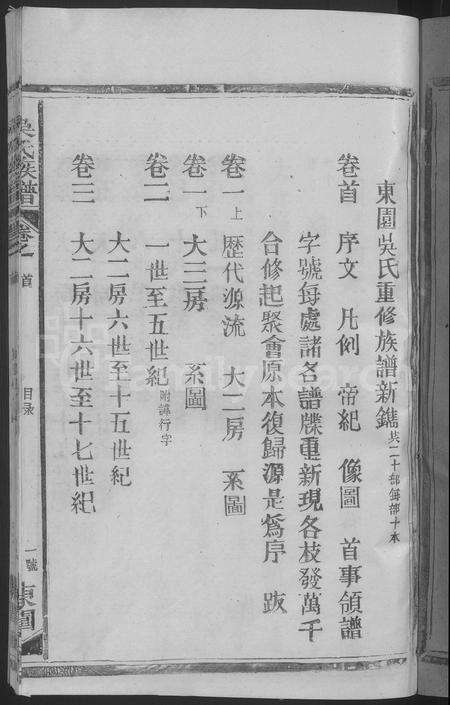 東園吳氏重修族譜新鐫共二十部每部十本
卷首 序文 凡例 帝紀 像圖 首事領譜
字號每處諸各譜牒重新現各枝發萬千
合修起聚會原本復歸源是為序 跋
卷一上 歷代源流 大二房 系圖
卷一下 大三房 系圖
卷二 一世至五世紀附諱行字
大二房六世至十五世紀
卷三 大二房十六世至十七世紀
吳氏族譜 卷之首 目录 一號 東園